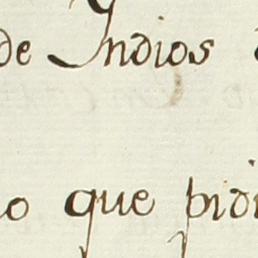 de Indios
que pidi